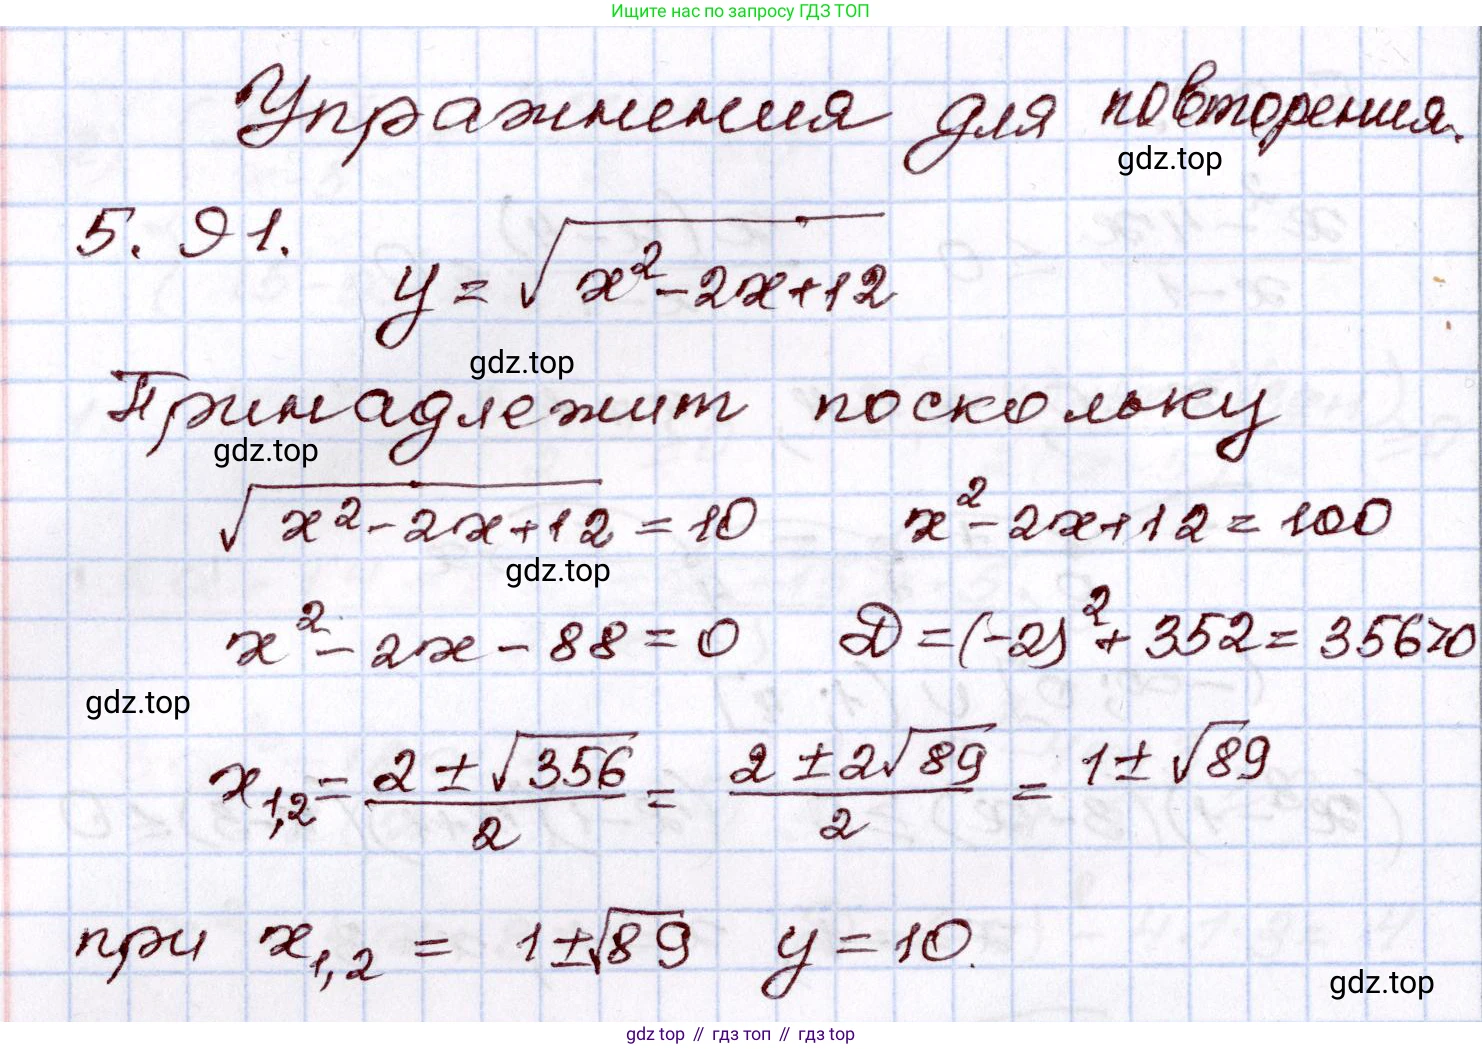 Ищите нас по запросу ГДЗ ТОП
Упражнения для повторения.
gdz.top
5.91.
y = √(x² - 2x + 12)
gdz.top
Принадлежит поскольку
gdz.top
√(x² - 2x + 12) = 10 x² - 2x + 12 = 100
gdz.top
x² - 2x - 88 = 0 D = (-2)² + 352 = 356 > 0
gdz.top
x₁,₂ = (2 ± √356)/2 = (2 ± 2√89)/2 = 1 ± √89
при x₁,₂ = 1 ± √89 y = 10.
gdz.top
gdz top // гдз топ // гдз top